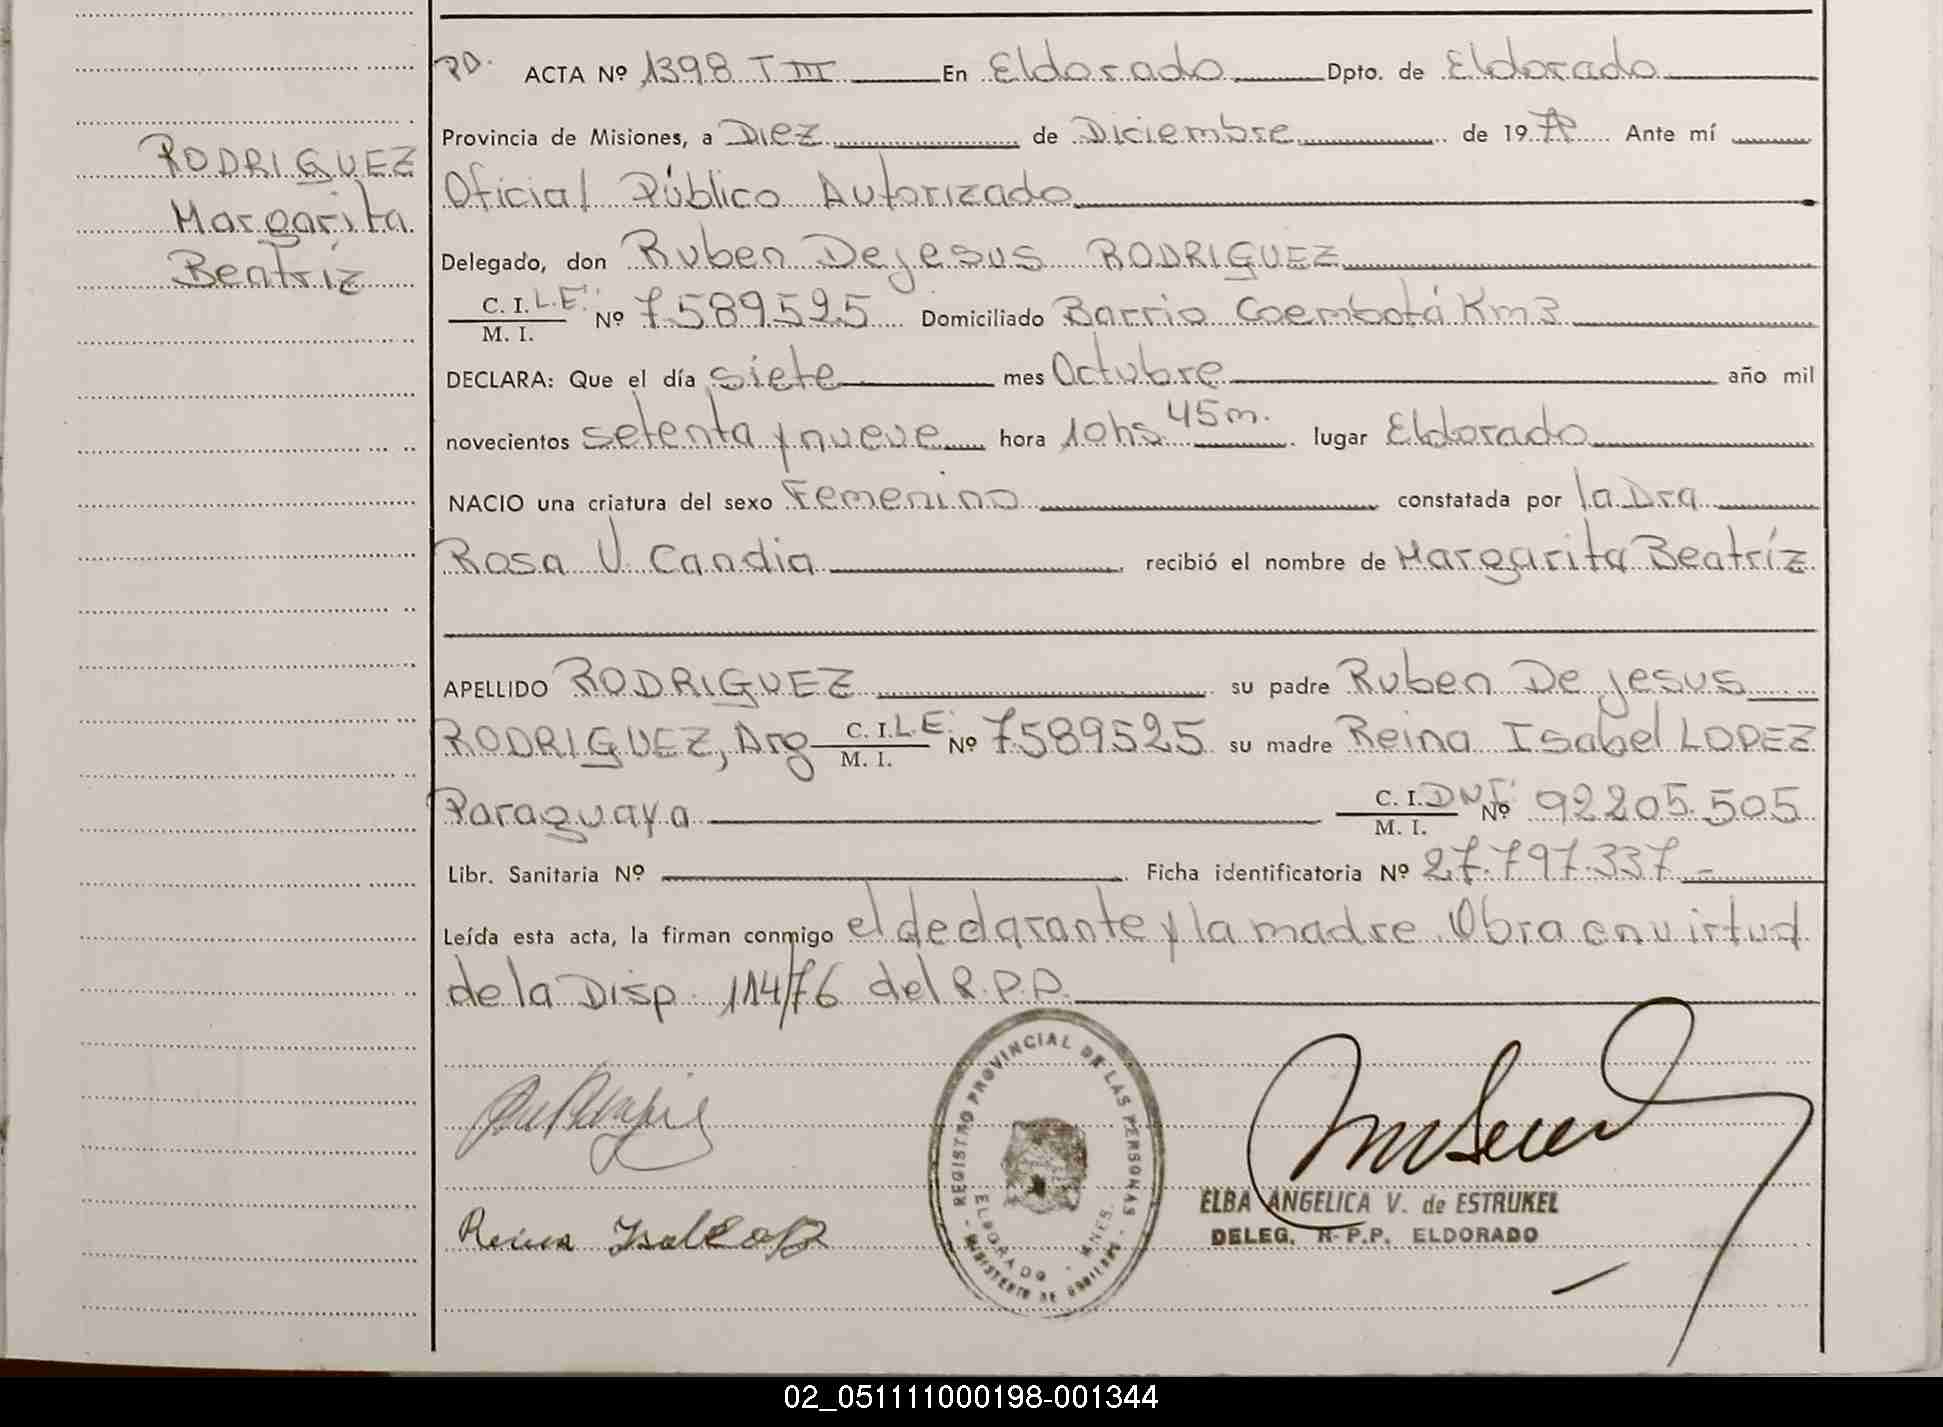 RODRIGUEZ
Margarita
Beatríz
PD. ACTA Nº 1398 T III En Eldorado Dpto. de Eldorado
Provincia de Misiones, a Diez de Diciembre de 19 79 Ante mí
Oficial Público Autorizado
Delegado, don Ruben De jesus RODRIGUEZ
C. I. L.E. Nº 7589525 Domiciliado Barrio Coembotá Km3
M. I.
DECLARA: Que el día siete mes Octubre año mil
novecientos setenta y nueve hora 10hs 45m. lugar Eldorado
NACIO una criatura del sexo Femenino constatada por la Dra
Rosa V. Candia recibió el nombre de Margarita Beatríz
APELLIDO RODRIGUEZ su padre Ruben De jesus
RODRIGUEZ, Arg C. I. L.E. Nº 7589525 su madre Reina Isabel LOPEZ
M. I.
Paraguaya C. I. DNI. Nº 92205.505
M. I.
Libr. Sanitaria Nº Ficha identificatoria Nº 27.797.337.-
Leída esta acta, la firman conmigo el declarante y la madre. Obra en virtud
de la Disp. 114/76 del R.P.P.
REGISTRO PROVINCIAL DE LAS PERSONAS
ELDORADO - MNES.
Reina Isabel
ELBA ANGELICA V. de ESTRUKEL
DELEG. R.P.P. ELDORADO
02_051111000198-001344